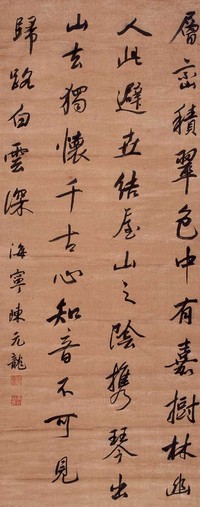 層巒積翠色中有嘉樹林幽
人此避世結屋山之陰携琴出
山去獨懷千古心知音不可見
歸路白雲深
海寧陳元龍